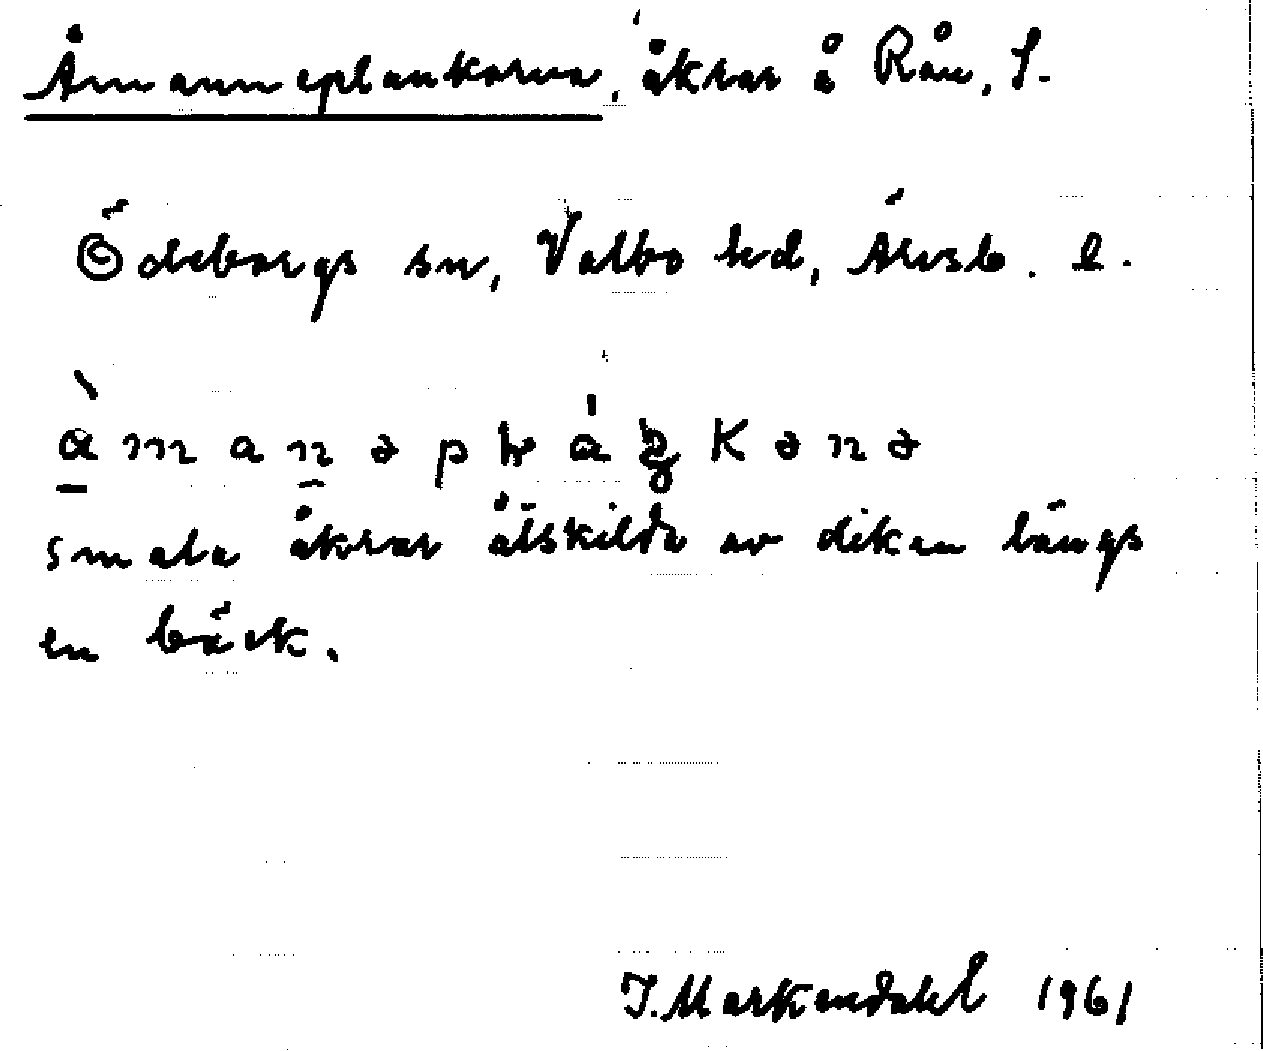 Åmanneplankorna, åkrar å Rån, S.
Ödeborgs sn, Valbo hd, Älvsb. l.
smala åkrar åtskilda av diken längs
en bäck.
J. Markendahl 1961